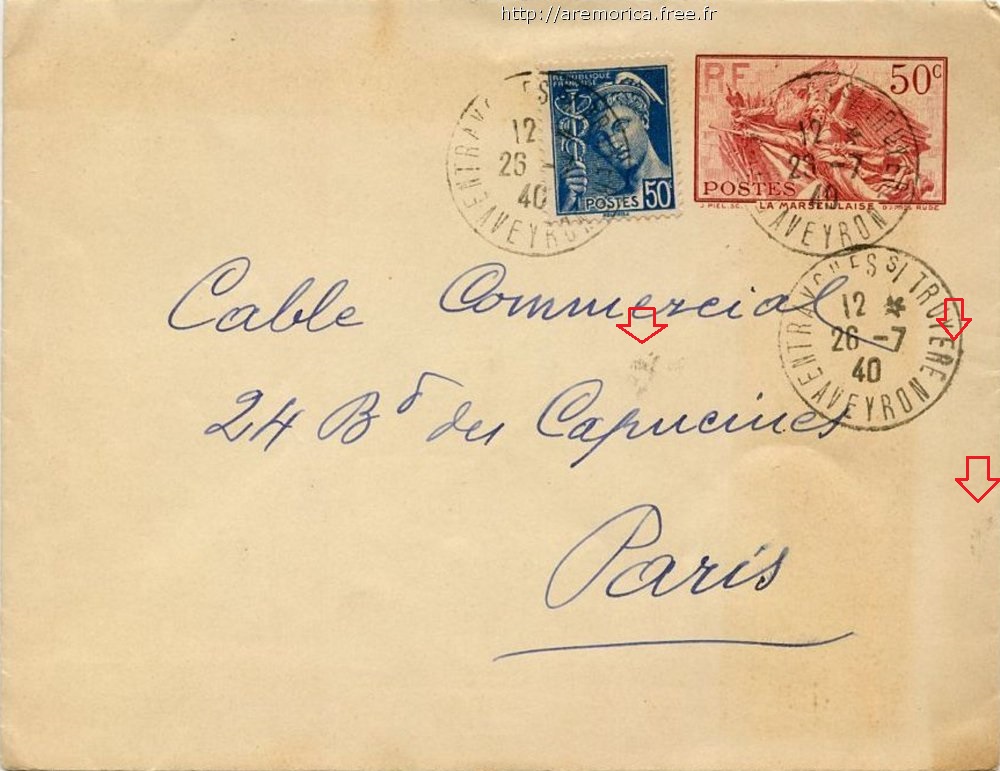 http://aremorica.free.fr
RF 50c
REPUBLIQUE FRANCAISE
POSTES 50c
POSTES
J. PIEL. SC. LA MARSEILLAISE
12
26 -
40
AVEYRON
12 *
-7
40
AVEYRON
ENTRAYGUES S/ TRUYERE
12 *
26 -7
40
AVEYRON
Cable Commercial
24 Bd des Capucines
Paris